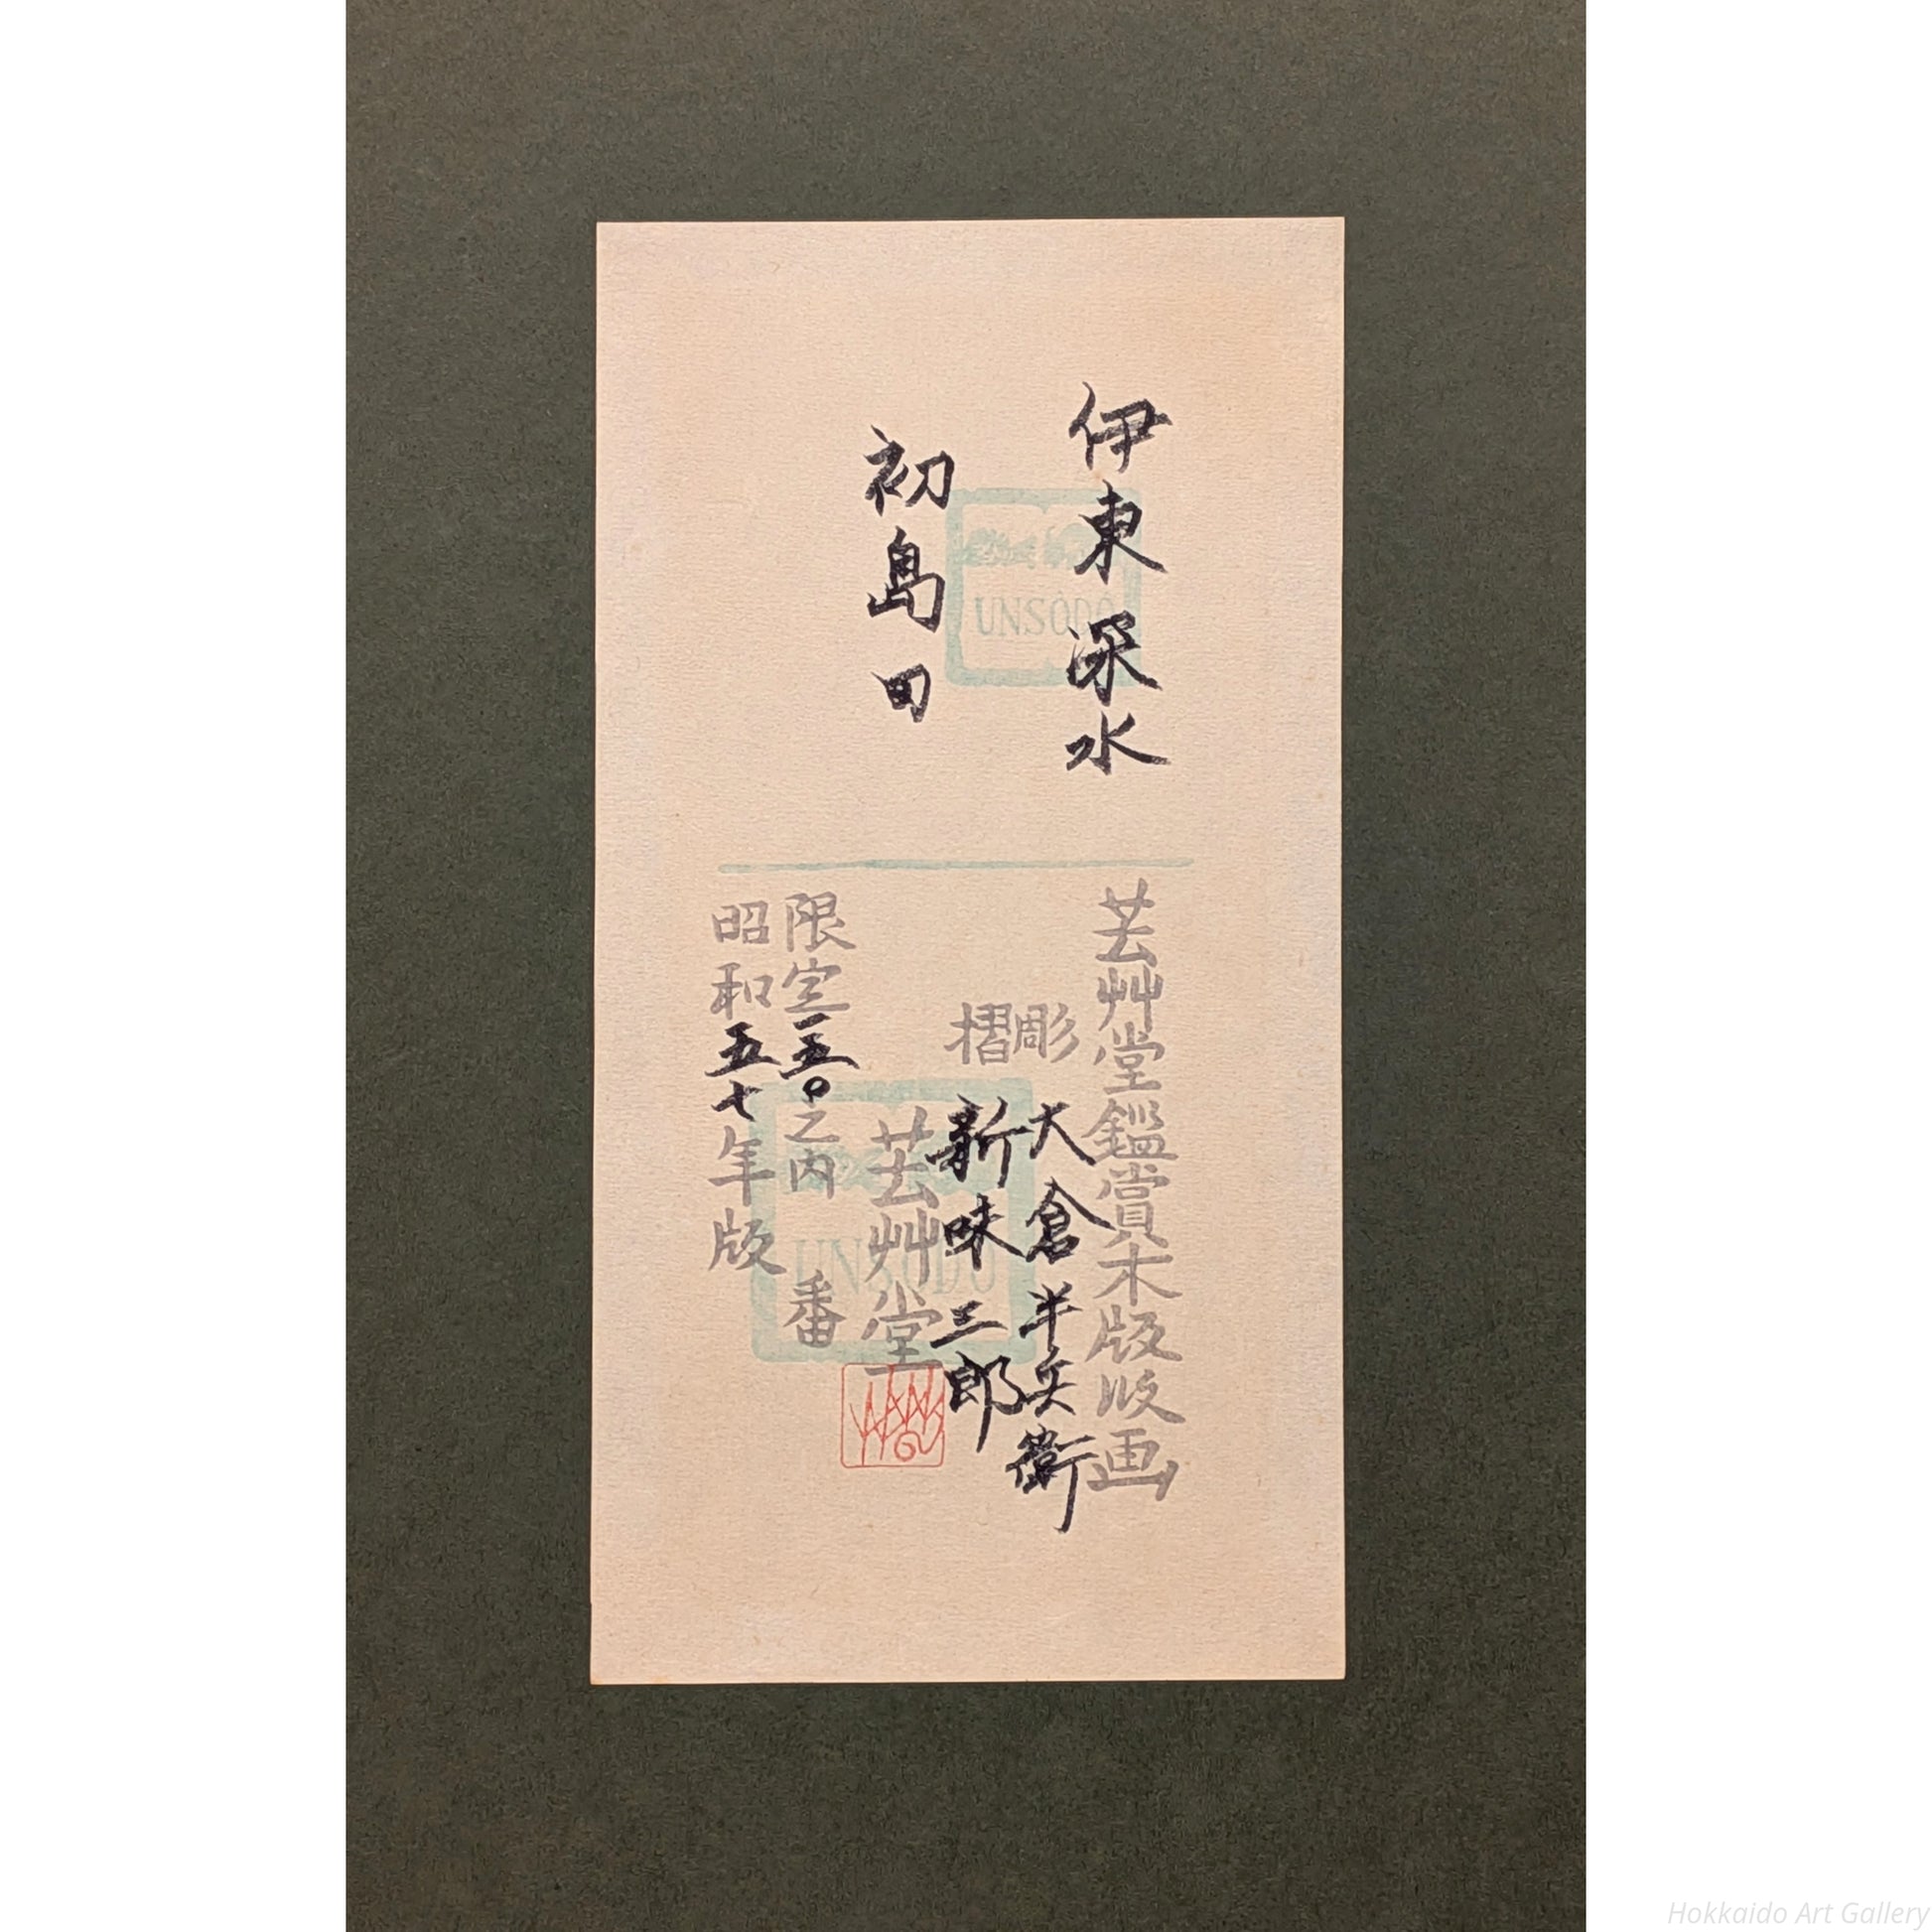 伊東深水
初島田
UNSODO
芸艸堂鑑賞木版画
彫 大倉半兵衛
摺 新味三郎
芸艸堂
限定一五〇之内 番
昭和五七年版
UNSODO
Hokkaido Art Gallery